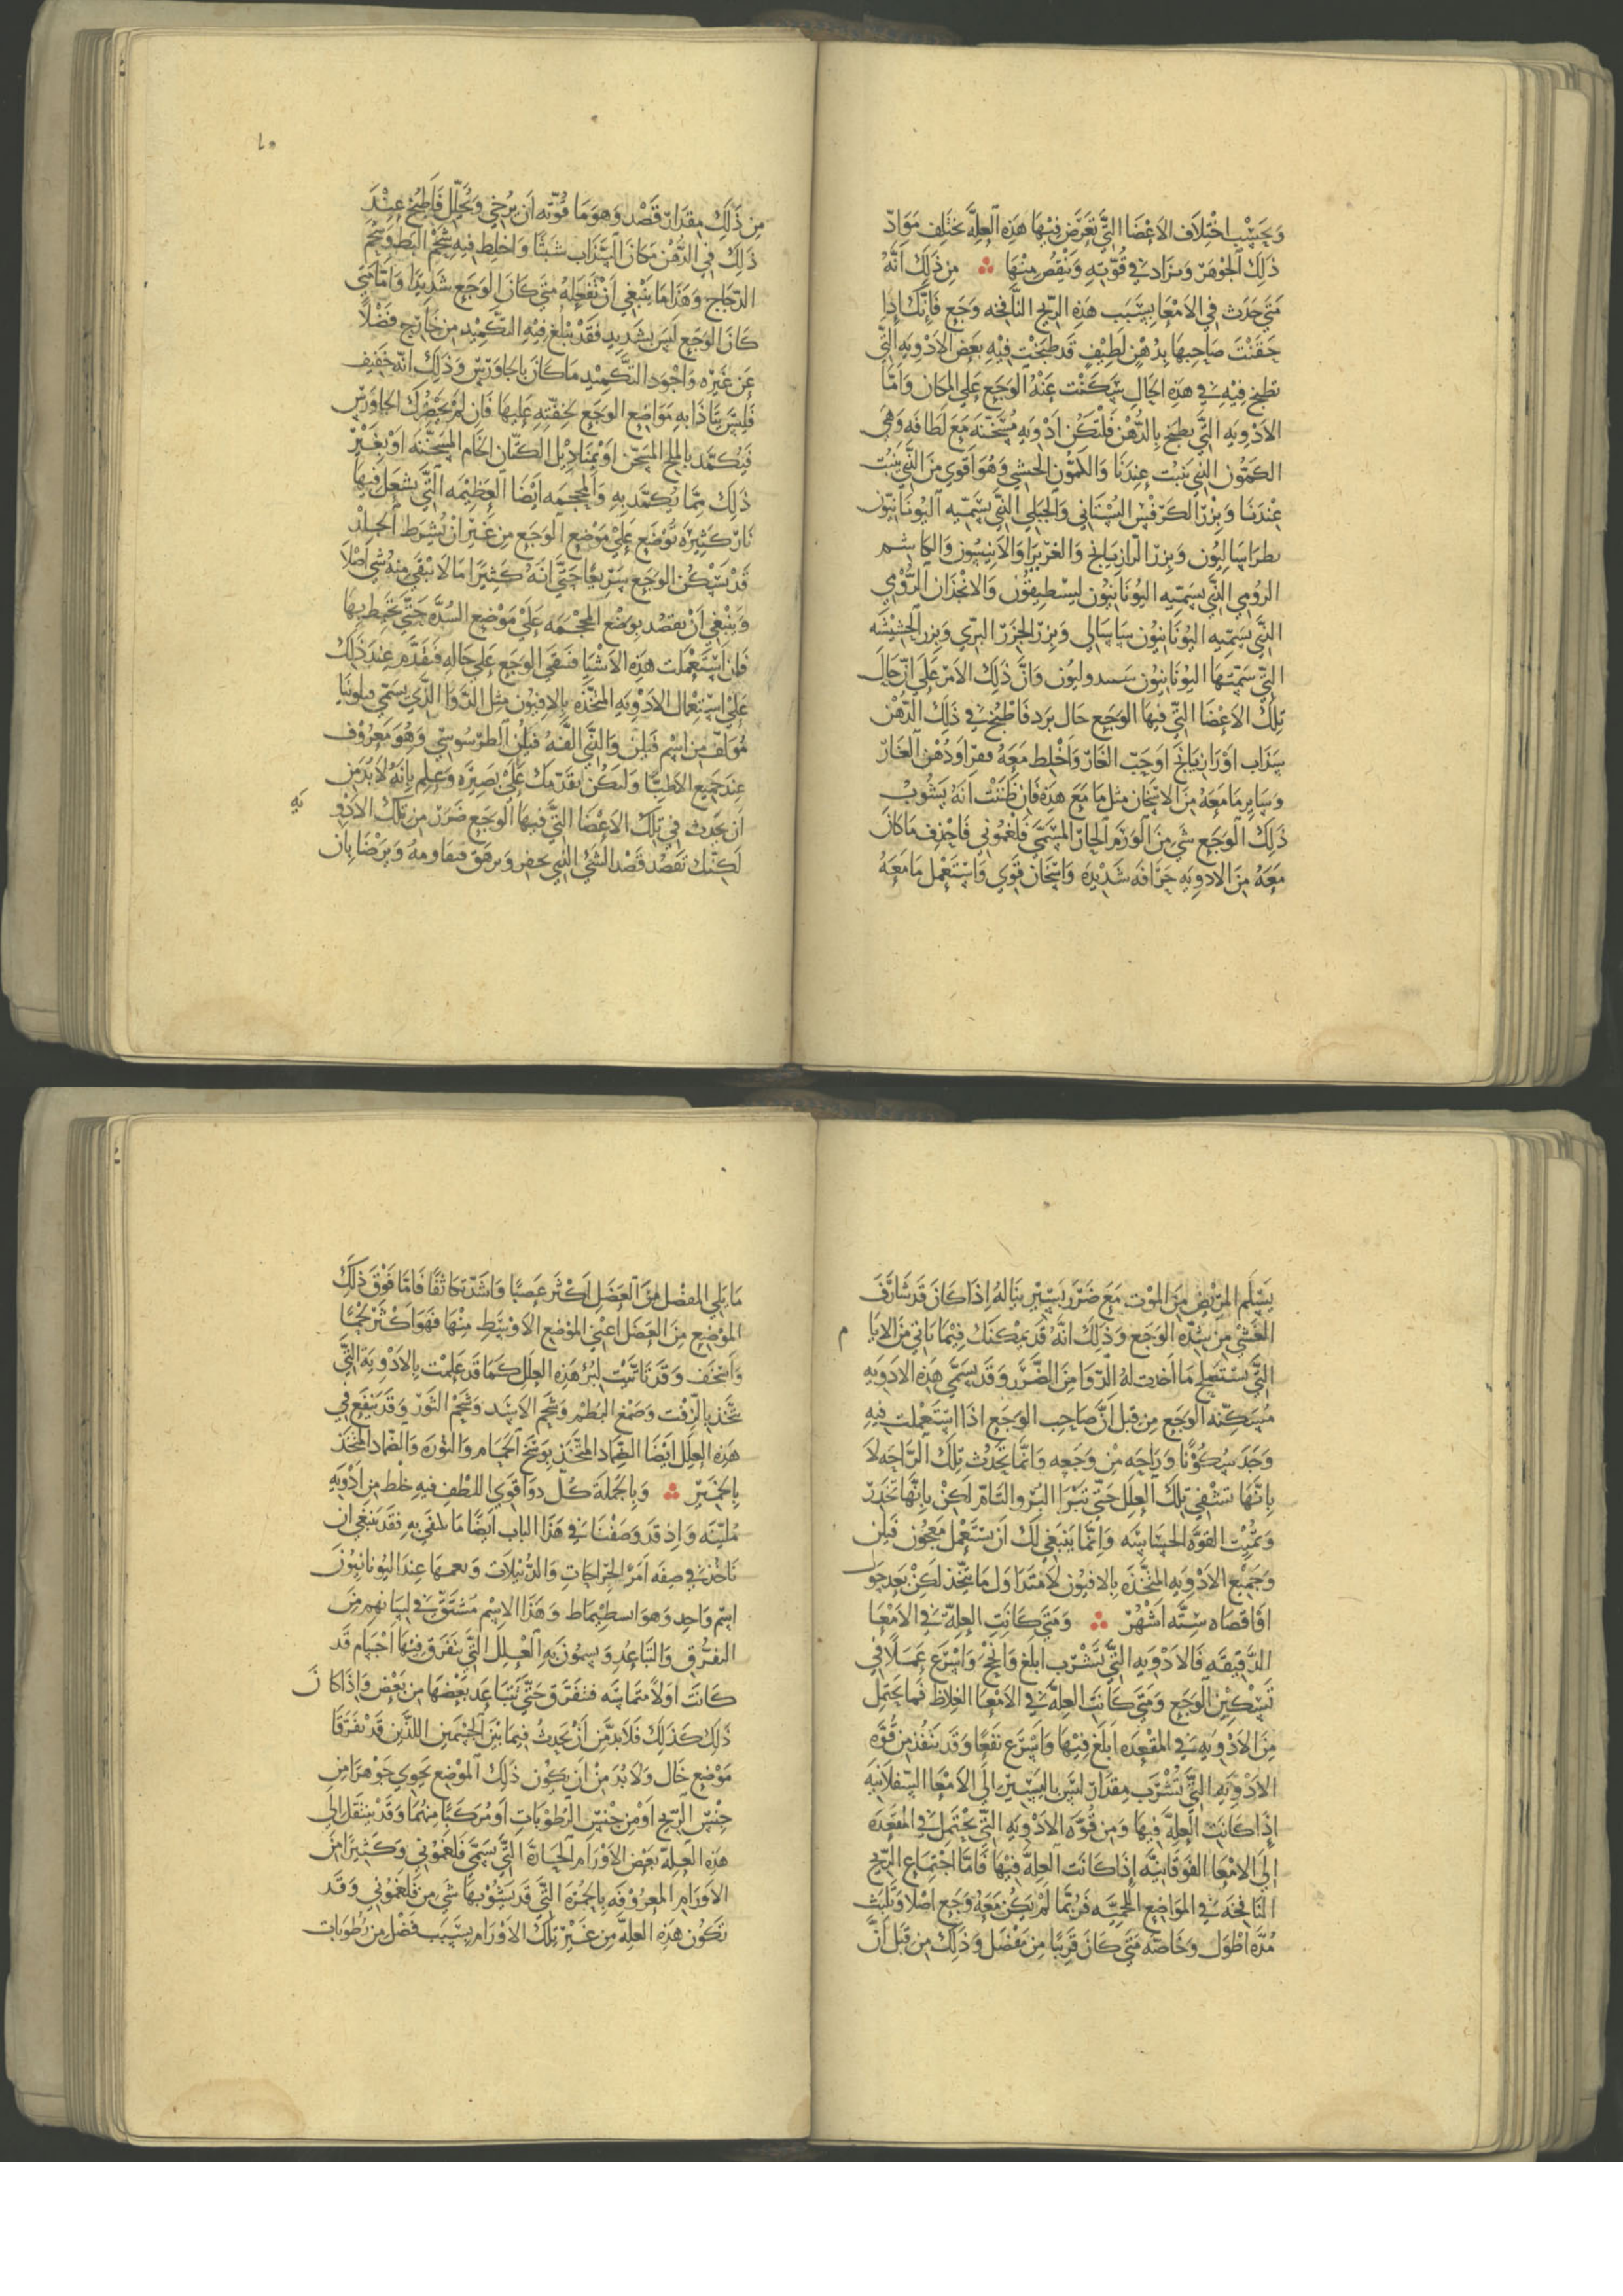 وَبِحَسْب اختِلَاف الاعْضَا التَّي تعَرَّض فيْهَا هَذِه العِلَّه تختَلِف مَوَادّ
ذلِكَ الجَوْهَرْ وَيزَاد في قُوّتِهِ وَيَنْقُص مِنْهَا ∴ مِن ذَلِكَ انَّهُ
مَتَي حَدَث في الامْعَا بِسَبَب هَذِهِ الرّيح النَّافخه وَجَع فَإنَّكَ إذا
حَقَنْتَ صَاحِبهَا بِدُهْنٍ لَطِيْفٍ قَد طبَخْت فيْهِ بَعْض الادْوِيَه الَّتي
تطبخ فِيْهِ في هَذِه الحَالِ سَكَنْت عَنْهُ الوَجَع عَلي المكَان وَامَّا
الادْوِيَه التَّي تطبَخ بِالدُّهْن فَلْتَكُن ادْوِيَه مُسَخّنَه مَعَ لَطَافَه وَهيَ
الكَمُّون الَّذِي يَنبت عِندَنَا وَالكَمُّون الحبَشي وَهُوَ اقوَي مِنَ الَّذِي يَنبُت
عِنْدَنَا وَبِزْرَ الكَرَفْس البُسْتَاني وَالجَبَلي الذَّي يسَمّيه اليُونَانيّون
بطراساليُون وَبِزرَ الرازيَانج وَالغزيرَا وَالانيسُون وَالكَاشم
الرّومي الَّذِّي يسَمّيه اليُونَانيُون ليسْطيقُون وَالانجُدَان الرُّوْمي
الذَّي يسَمّيهِ اليُونَانيُون سَاسَالي وَبِزرَ الجَزَر البَرّي وَبزر الحَشيْشَه
التَّي تسَمّيْهَا اليُونَانيُون سسدوليُون وَانَّ ذلِكَ الامر عَلَي انّ حَال
تِلكَ الاعْضَا التَّي فيهَا الوَجَع حَال بَرَد فَاطْبُخ في ذلِكَ الدّهْن
سَذَاب اوْ رَازيَانج اوْ حَبّ الغَار وَاخْلِط مَعَهُ قفرا اوْ دُهْن الغَارّ
وَسَاير مَا مَعَهُ مِنَ الاسْخَان مثل مَا مَعَ هَذِه فَان ظَنَنْت انَّهُ يَشُوْب
ذلِكَ الوَجَع شي مِنَ الوَرَم الحَارّ المسَمَّي فَلْغَمُوني فَاحذِف مَا كَانَ
مَعَهُ مِنَ الادوِيَهِ حَرَافه شَدِيْدَه وَاسْخَان قَوي وَاسْتَعْمل مَا مَعَهُ
١٠
مِن ذَلِكَ مقدَارّ قَصْد وَهوَ مَا قوَّته ان يُرخي وَيُحَلّل فَاطبُخ عِنْدَ
ذلِكَ في الدّهْن مَكَانَ السَّذَاب شَبثًا وَاخلِط فيه شَحْم البَط وَشحم
الدّجَاج وَهَذَا مَا يَنْبَغي انْ تَفعَلهُ مَتي كَانَ الوَجَع شَدِيدًا وَامَّا مَتي
كَانَ الوَجَع لَيسَ بشَديد فَقَدْ يَبْلغ فيْهِ التَّكميْد مِن خَارج فَضْلاً
عَن غَيْره وَاجْوَد التَّكمِيْد مَا كَانَ بالجَاوَرْس وَذلِكَ انّه خَفِيف
فَليْسَ يتَاذا بِهِ مَوَاضِع الوَجَع لخفَّتِهِ عَلَيهَا فَان لمْ يَحْضُرك الجاوَرس
فيكمَّد بالملح المسَخّن اوْ بمنَادِيْل الكتّان الخَام المسَخَّنَه اوْ بِغَيْر
ذلِكَ ممَّا يُكَمَّد بِهِ وَالمِحْجَمه ايْضًا العَظيْمَه التَّي تشعَل فيهَا
نَارّ كَثِيْرَه تُوْضَع عَلي مَوْضِع الوَجَع مِن غَيْر انْ يُشرَط الجِلْد
قَدْ تُسَكّن الوَجَع سَرِيعًا حَتَّي انّه كَثيْرًا مَا لَا يَبْقَي مِنهُ شي اصْلًا
وَيَنْبَغي انْ يقصَد بِوَضْع المِحْجَمَه عَلَي مَوْضِع السُّدّه حَتَّي تحيْط بِهَا
فَانِ اسْتَعْملت هَذِه الاشْيَا فَبقي الوَجَع عَلي حَالِهِ فتقَدَّم عِندَ ذَلِكَ
عَلَي اسْتِعْمَال الادْوِيَهِ المتّخَذَه بِالافيُون مثل الدَّوَا الذَّي يسَمّي فيلونيا
مُؤلف مِن اسْم فَيلن وَالذّي الفَهُ فيلن الطرسُوسي وَهُوَ مَعرُوْف
عِندَ جَميع الاطِبَّا وَليَكُن تقدّمك عَلَي بَصِيْرَه وَعلِم بِانَّهُ لَا بُدَّ مِن
ان يَحدث في تِلكَ الاعْضَا التَّي فيهَا الوَجَع ضَرَرّ مِن تلكَ الادْو يَهِ
لَكنَّك تقْصُد قَصْد الشَّي الذي يحفز وَيرهَق فتقاومهُ وَتَرْضَا بِان
يَسْلَم المَرِيْض مِنَ المَوْت مَعَ ضَرَر يَسِيْر يَنَالهُ اذَا كَانَ قَد شَارَفَ
الغَشْي مِن شدّه الوَجَع وَذلِكَ انَّهُ قَد يمكنَك فيْمَا يَاتي مِنَ الايا م
التَّي تسْتصلح مَا احْدَث لهُ الدّوَا مِنَ الضَّرَر وَقَد يسَمَّي هَذِه الادوِيَه
مُسَكِّنه الوَجَع مِن قَبل انَّ صَاحِب الوَجَع اذَا اسْتَعْملت فيهِ
وَجَدَ سُكُوْنًا وَرَاحَه مِنْ وَجَعه وَانَّمَا تَحْدُث تِلكَ الرَّاحَه لَا
بِانّهَا تشْفي تلكَ العِلَل حَتَّي تبْرَا البُرْو التَّام لَكِنْ بِانّهَا تخَدِّر
وَتُمِيْت القوَّه الحسَّاسَه وَانَّما يَنبَغي لَك ان تسْتَعْمل مَعْجُون فَيلن
وَجَميْع الادْوِيَهِ المتَّخَذَه بِالافيُون لَا مُبتدَا اول مَا تتّخذ لَكِنْ بَعد حَول
اوْ اقصَاه سِتَّه اشْهُرْ ∴ وَمَتَي كَانَت العلّه في الامْعَا
الدَّقيْقَه فَالادْوِيَه التَّي تشْرَب ابلَغ وَانجَح وَاسْرَع عَمَلاً في
تَسْكِيْن الوَجَع وَمَتَي كَانَت العِلّه في الامْعَا الغِلاظ فَما يحتَمَل
مِنَ الادْوِيَهِ في المقْعِدَه ابلَغ فيْهَا وَاسْرَع نَفعًا وَقد ينفُذ مِن قُوَّه
الادْوِيَه التَّي تُشْرَب مِقدَارّ ليسَ باليَسِيْر الَي الامْعَا السّفلَانيَه
اِذَا كَانَت العِلَّه فيهَا وَمِن قُوَّه الادْوِيَه التَّي تحْتمَل في المقعَدَه
الَي الامْعَا الفَوقَانيَّه اِذَا كَانَت العِلَّه فيْهَا فَامَّا اجْتِمَاع الرّيح
النَّافِخَه في المَوَاضِع اللحميّه فَرُبَّمَا لمْ يَكُنْ مَعَهُ وَجَع اصْلا وَتلبَث
مُدَّه اطْوَل وَخَاصّه مَتَي كَانَ قَرِيبًا مِن مَفْصل وَذلِكَ مِن قبَل انَّ
مَا يَلي المَفْصل مِنَ العَضَل اكْثَر عَصَبًا وَاشَدّ تكَاثفًا فَامّا فَوْقَ ذلِكَ
المَوْضِع مِنَ العضَل اعْني المَوْضع الاوْسَط مِنْهَا فَهوَ اكْثَر لَحْمًا
وَاسْخَف وَقَد تَاتَّيْت لبُرْ هَذِه العِلَل كَمَا قَد عَلِمْت بِالادْوِيَه التَّي
تتّخَذ بِالزّفت وَصَمغ البُطم وَشحم الاسَد وَشحم الثوْر وَقَد يَنفَع في
هَذِه العِلَل ايضًا الضّماد المتَّخَذ بِوَسَخ الحَمّام وَالنُورَه وَالضّمَاد المتّخَذ
بِالخَميْر ∴ وَبِالجُملَة كُل دوَا قَوي اللطْف فيهِ خَلْط مِن ادْوِيَهِ
مُليّنَه وَاِذ قَد وَصَفْنَا في هَذَا الباب ايضًا مَا يكتفي بِهِ فقَد يَنبَغي ان
نَاخُذ في صِفَه امْر الخُرّاجَاتِ وَالدُّبَيْلات وَيعمهَا عِندَ اليُونَانيّونَ
اسْم وَاحِد وَهوَ ابسطيْماط وَهَذَا الاسْم مُشْتَقّ في لِسَانهم مِنَ
التفَرُّق وَالتّبَاعُد وَيسمُّونَ بِهِ العِلَل التَّي تتفَرَق فِيْهَا اجْسَام قَد
كَانَت اوَلًا متمَاسَّه فتفَرَّق حَتَّي تَتَبَاعَد بَعْضُهَا مِن بَعْض وَاِذَا كَا نَ
ذلِكَ كَذَلِكَ فَلَا بُدّ مِّن انْ يَحدث فيْمَا بَيْنَ الجِسْمَين اللذَيْن قَدْ تَفَرَّقَا
مَوْضع خَال وَلَا بُدّ مِنْ ان يَكُوْن ذلِكَ المَوْضِع يَحوِي جَوْهَرًا مِن
جِنْس الرّيح اوْ مِن جِنْس الرطُوبَاتِ اوْ مُرَكبًا مِنهمَا وَقَدْ ينتقل الي
هَذِه العِلّهْ بَعْض الاوْرَام الحَارّة التَّي تسَمَّي فَلغمُوني وَكَثيرًا مِنَ
الاورَام المعرُوفَه بِالحُمْرَه التَّي قَد يَشُوْبهَا شَي مِن فَلغَمُوني وَقَد
تكُوْن هَذِه العلِّه مِن غَيْر تِلكَ الاوْرَام بِسَبَب فَضْل مِن رُطُوبَات